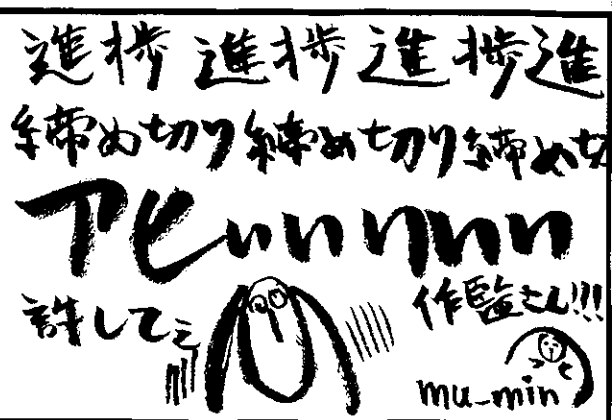 進捗 進捗 進捗進
締め切り締め切り締め切
アヒぃぃぃぃぃぃ
許してぇ
作監さん!!!
mu-min